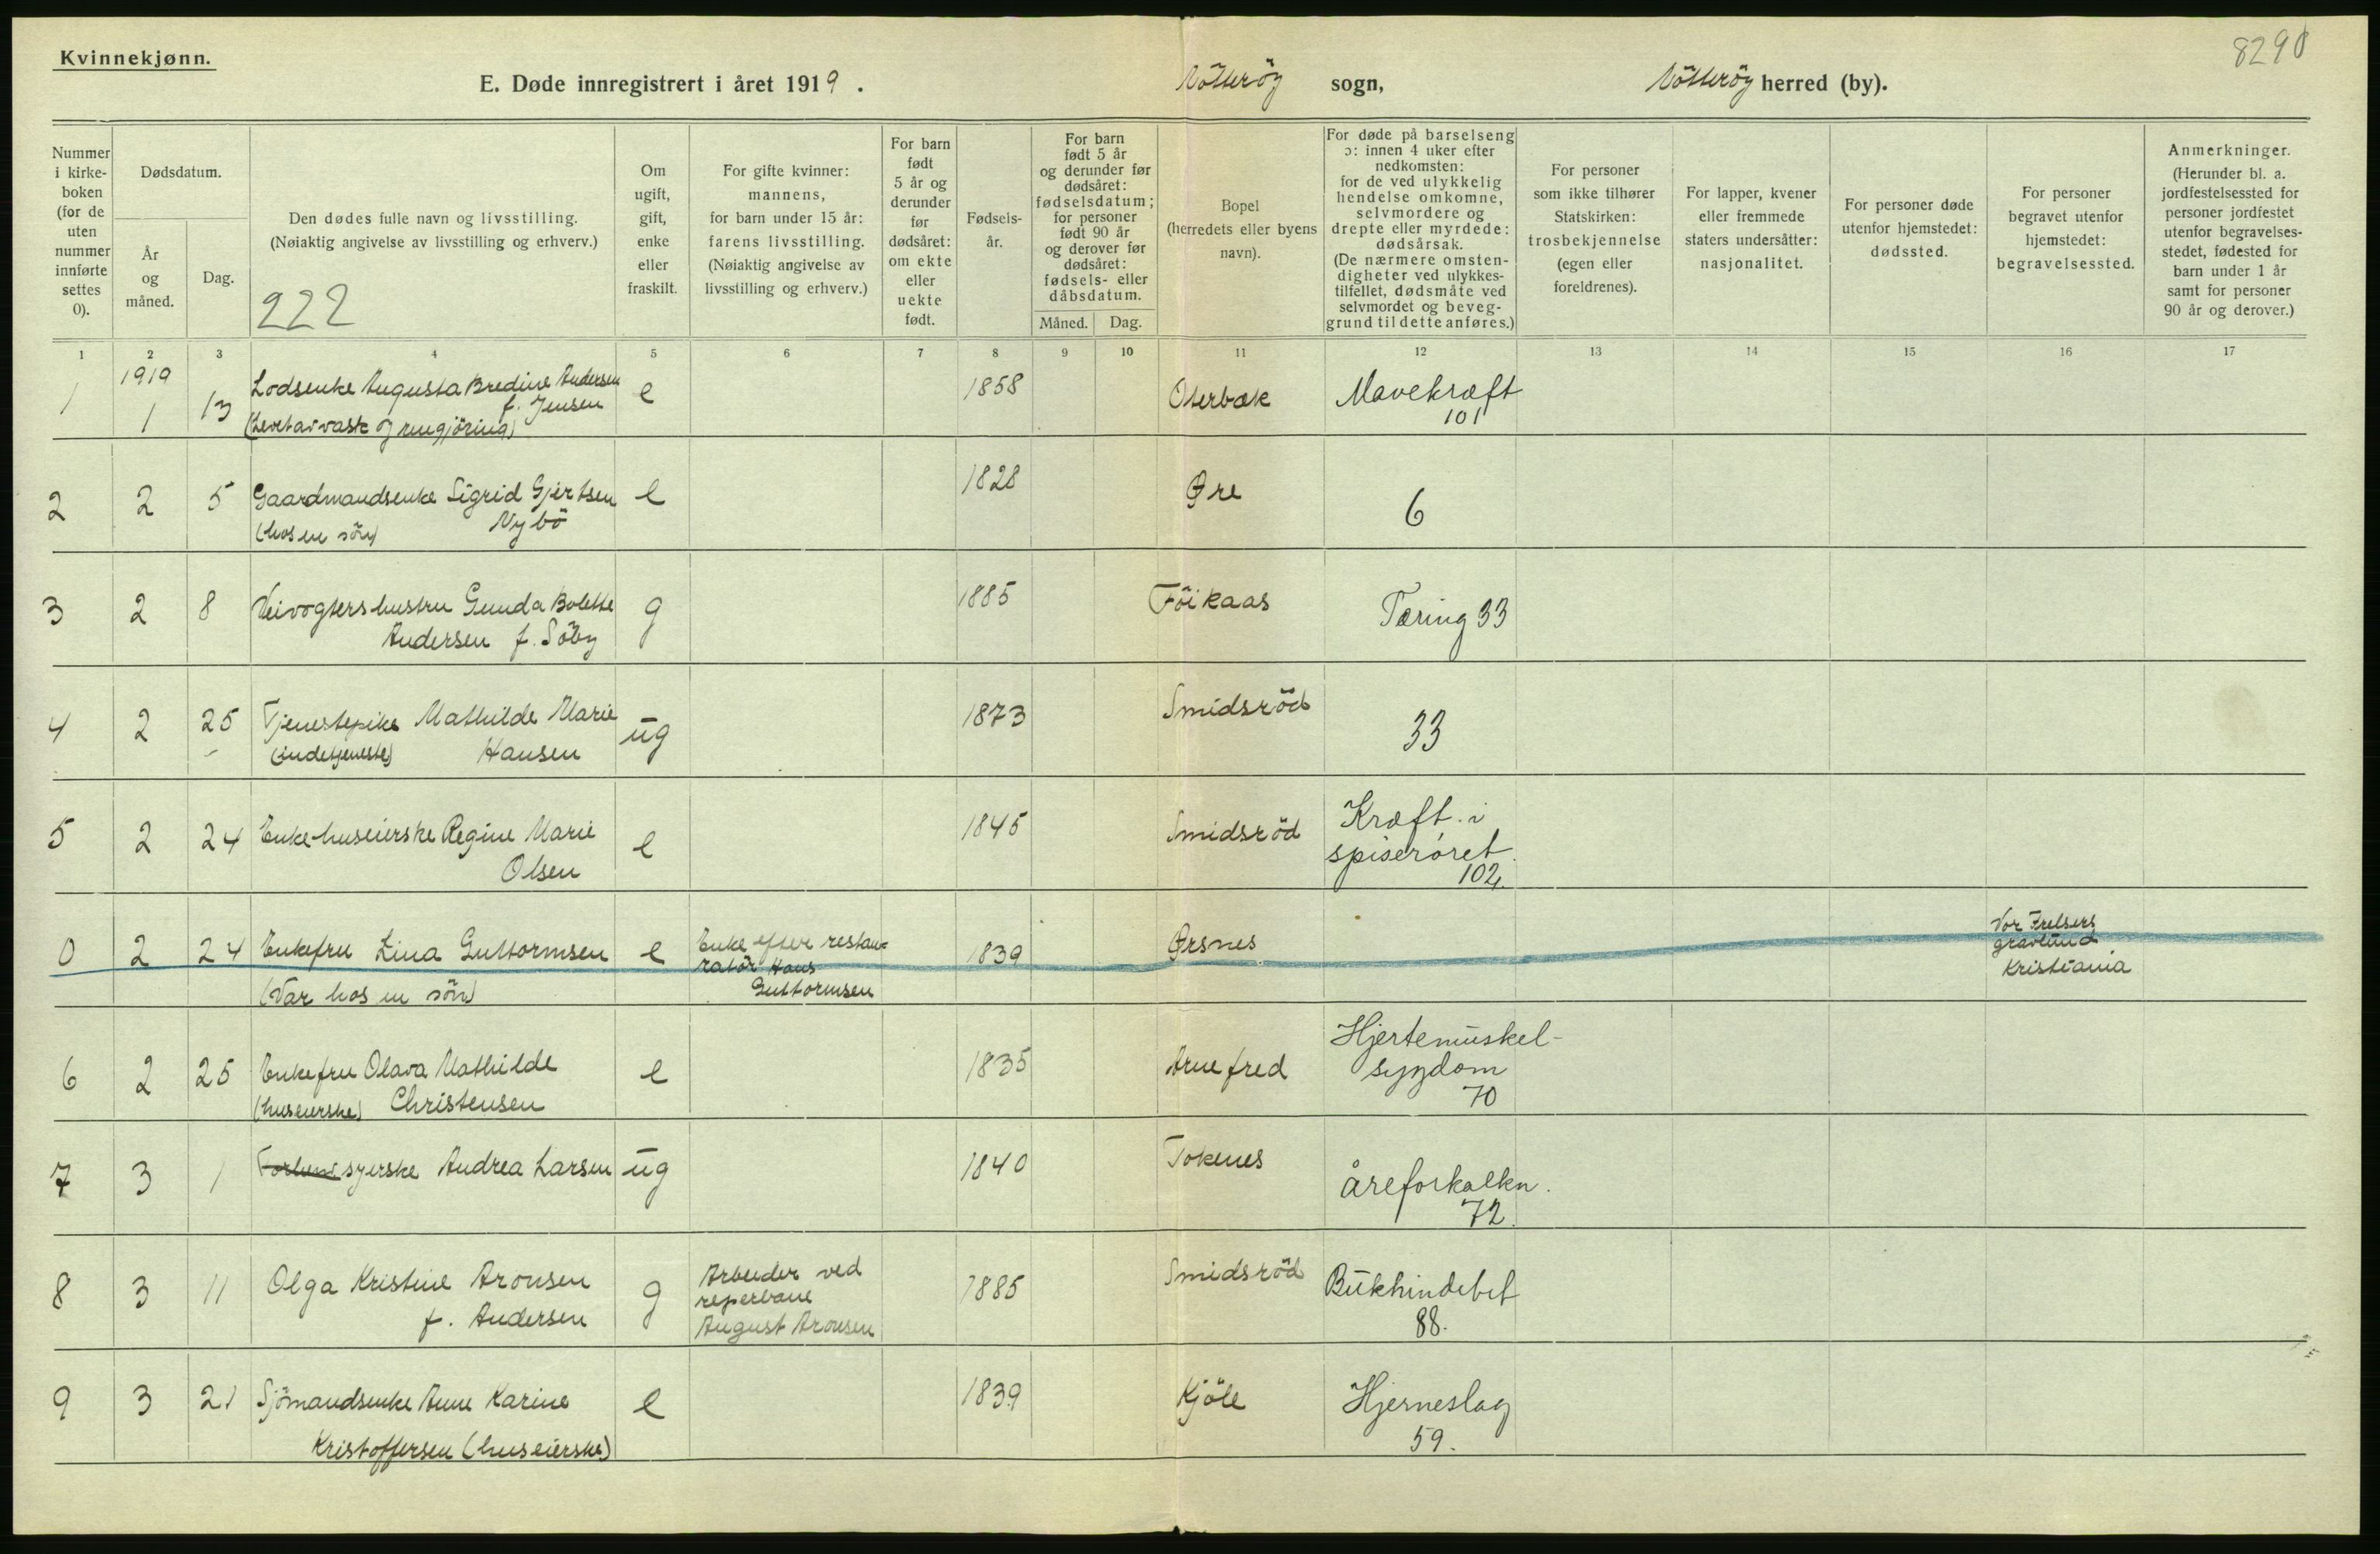 8290
Kvinnekjønn.
E. Døde innregistrert i året 1919. Nötteröy sogn, Nötteröy herred (by).
Nummer i kirke-boken (for de uten nummer innførte settes 0).
Dødsdatum.
År og måned.
Dag.
Den dødes fulle navn og livsstilling.
(Nøiaktig angivelse av livsstilling og erhverv.)
222
Om ugift, gift, enke eller fraskilt.
For gifte kvinner: mannens, for barn under 15 år: farens livsstilling.
(Nøiaktig angivelse av livsstilling og erhverv.)
For barn født 5 år og derunder før dødsåret: om ekte eller uekte født.
Fødsels-år.
For barn født 5 år og derunder før dødsåret: fødselsdatum; for personer født 90 år og derover før dødsåret: fødsels- eller dåbsdatum.
Måned. Dag.
Bopel (herredets eller byens navn).
For døde på barselseng ɔ: innen 4 uker efter nedkomsten: for de ved ulykkelig hendelse omkomne, selvmordere og drepte eller myrdede: dødsårsak.
(De nærmere omsten-digheter ved ulykkes-tilfellet, dødsmåte ved selvmordet og beveg-grund til dette anføres.)
For personer som ikke tilhører Statskirken: trosbekjennelse (egen eller foreldrenes).
For lapper, kvener eller fremmede staters undersåtter: nasjonalitet.
For personer døde utenfor hjemstedet: dødssted.
For personer begravet utenfor hjemstedet: begravelsessted.
Anmerkninger.
(Herunder bl. a. jordfestelsessted for personer jordfestet utenfor begravelses-stedet, fødested for barn under 1 år samt for personer 90 år og derover.)
1 2 3 4 5 6 7 8 9 10 11 12 13 14 15 16 17
1 1919 1 13 Lodsenke Augusta Bredine Andersen e 1858 Oterbæk Mavekræft
f. Jensen 101
(Levet av vask og rengjöring)
2 2 5 Gaardmandsenke Sigrid Gjertsen e 1828 Øre 6
(hos en sön) Nybö
3 2 8 Veivogters hustru Gunda Bolette g 1885 Föikaas Tæring 33
Andersen f. Söby
4 2 25 Tjenestepike Mathilde Marie ug 1873 Smidsröd 33
(indetjeneste) Hansen
5 2 24 Enke huseierske Regine Marie e 1845 Smidsröd Kræft i
Olsen spiserøret
102.
0 2 24 Enkefru Lina Guttormsen e Enke efter restau- 1839 Ørsnes Vor Frelsers
ratör Hans gravlund
(Var hos en sön) Guttormsen Kristiania
6 2 25 Enkefru Olava Mathilde e 1835 Arnefred Hjertemuskel-
(huseierske) Christensen sygdom
70
7 3 1 syerske Andrea Larsen ug 1840 Tokenes åreforkalkn.
72.
8 3 11 Olga Kristine Aronsen g Arbeider ved 1885 Smidsröd Bukhindebet
f. Andersen reperbane 88.
August Aronsen
9 3 21 Sjömandsenke Anne Karine e 1839 Kjöle Hjerneslag
Kristoffersen (huseierske) 59.